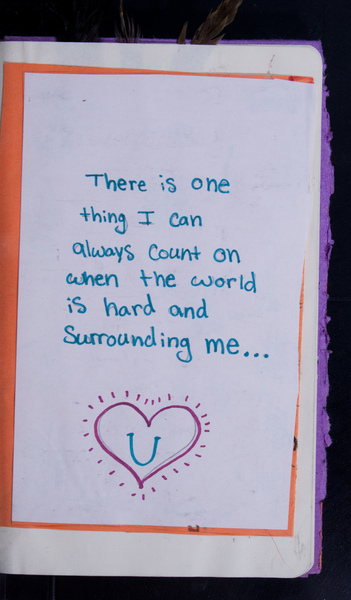 There is one
thing I can
always count on
when the world
is hard and
Surrounding me...
U